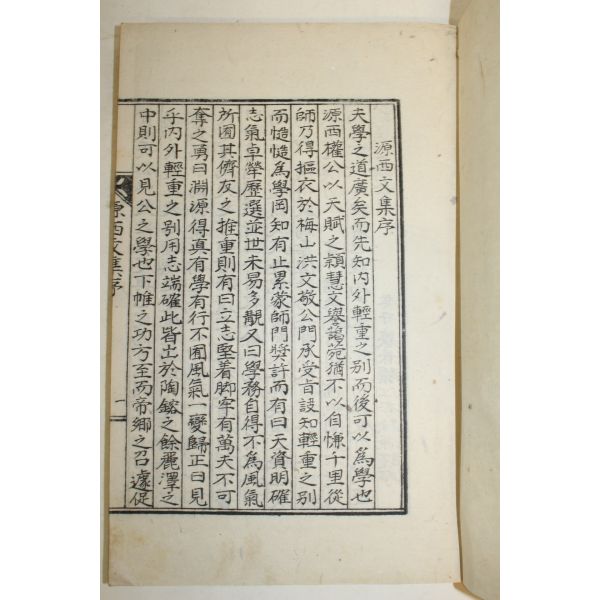 源西文集序
夫學之道廣矣而先知內外輕重之別而後可以爲學也
源西權公以天賦之穎慧文譽藹菀猶不以自慊千里從
師乃得摳衣於梅山洪文敬公門承受旨訣知輕重之別
而慥慥爲學罔知有止累蒙師門奬許而有曰天資明確
志氣卓犖歷選並世未易多覯又曰學務自得不爲風氣
所囿其儕友之推重則有曰立志堅着脚牢有萬夫不可
奪之勇曰淵源得眞有學有行不囿風氣一變歸正曰見
乎內外輕重之別用志端確此皆出於陶鎔之餘麗澤之
中則可以見公之學也下帷之功方至而帝鄕之召遽促
源西文集序
一